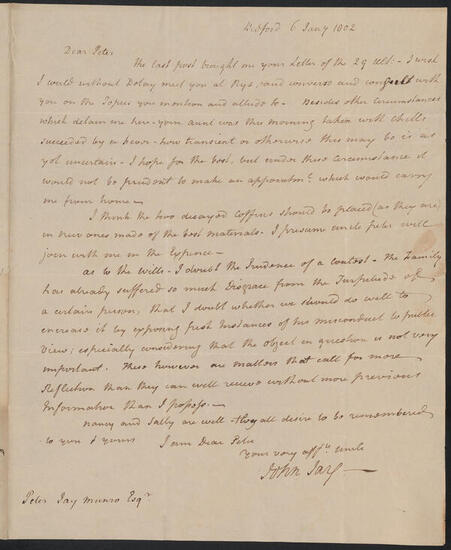 Bedford 6 Jany 1802
Dear Peter
The last post brought me your Letter of the 29 Ult:- I wish
I could without Delay meet you at Rye, and converse and consult with
you on the Topics you mention and allude to - Besides other circumstances
which detain me here - your aunt was this morning taken with chills
succeeded by a fever - how transient or otherwise this may be is as
yet uncertain - I hope for the best, but under these circumstances it
would not be prudent to make an appointmt. which would carry
me from home -
I think the two decayed Coffins should be placed (as they are)
in new ones made of the best materials. I presume uncle peter will
join with me in the Expence -
as to the wills - I doubt the Prudence of a contest - the Family
has already suffered so much Disgrace from the Turpitude of
a certain person, that I doubt whether we should do well to
increase it by exposing fresh Instances of his misconduct to public
View; especially considering that the object in question is not very
important. These however are matters that call for more
Reflection than they can well recieve without more previous
Information than I possess. -
Nancy and Sally are well - They all desire to be remembered
to you & yours I am Dear Peter
Your very affte. uncle
John Jay -
Peter Jay Munro Esqr.